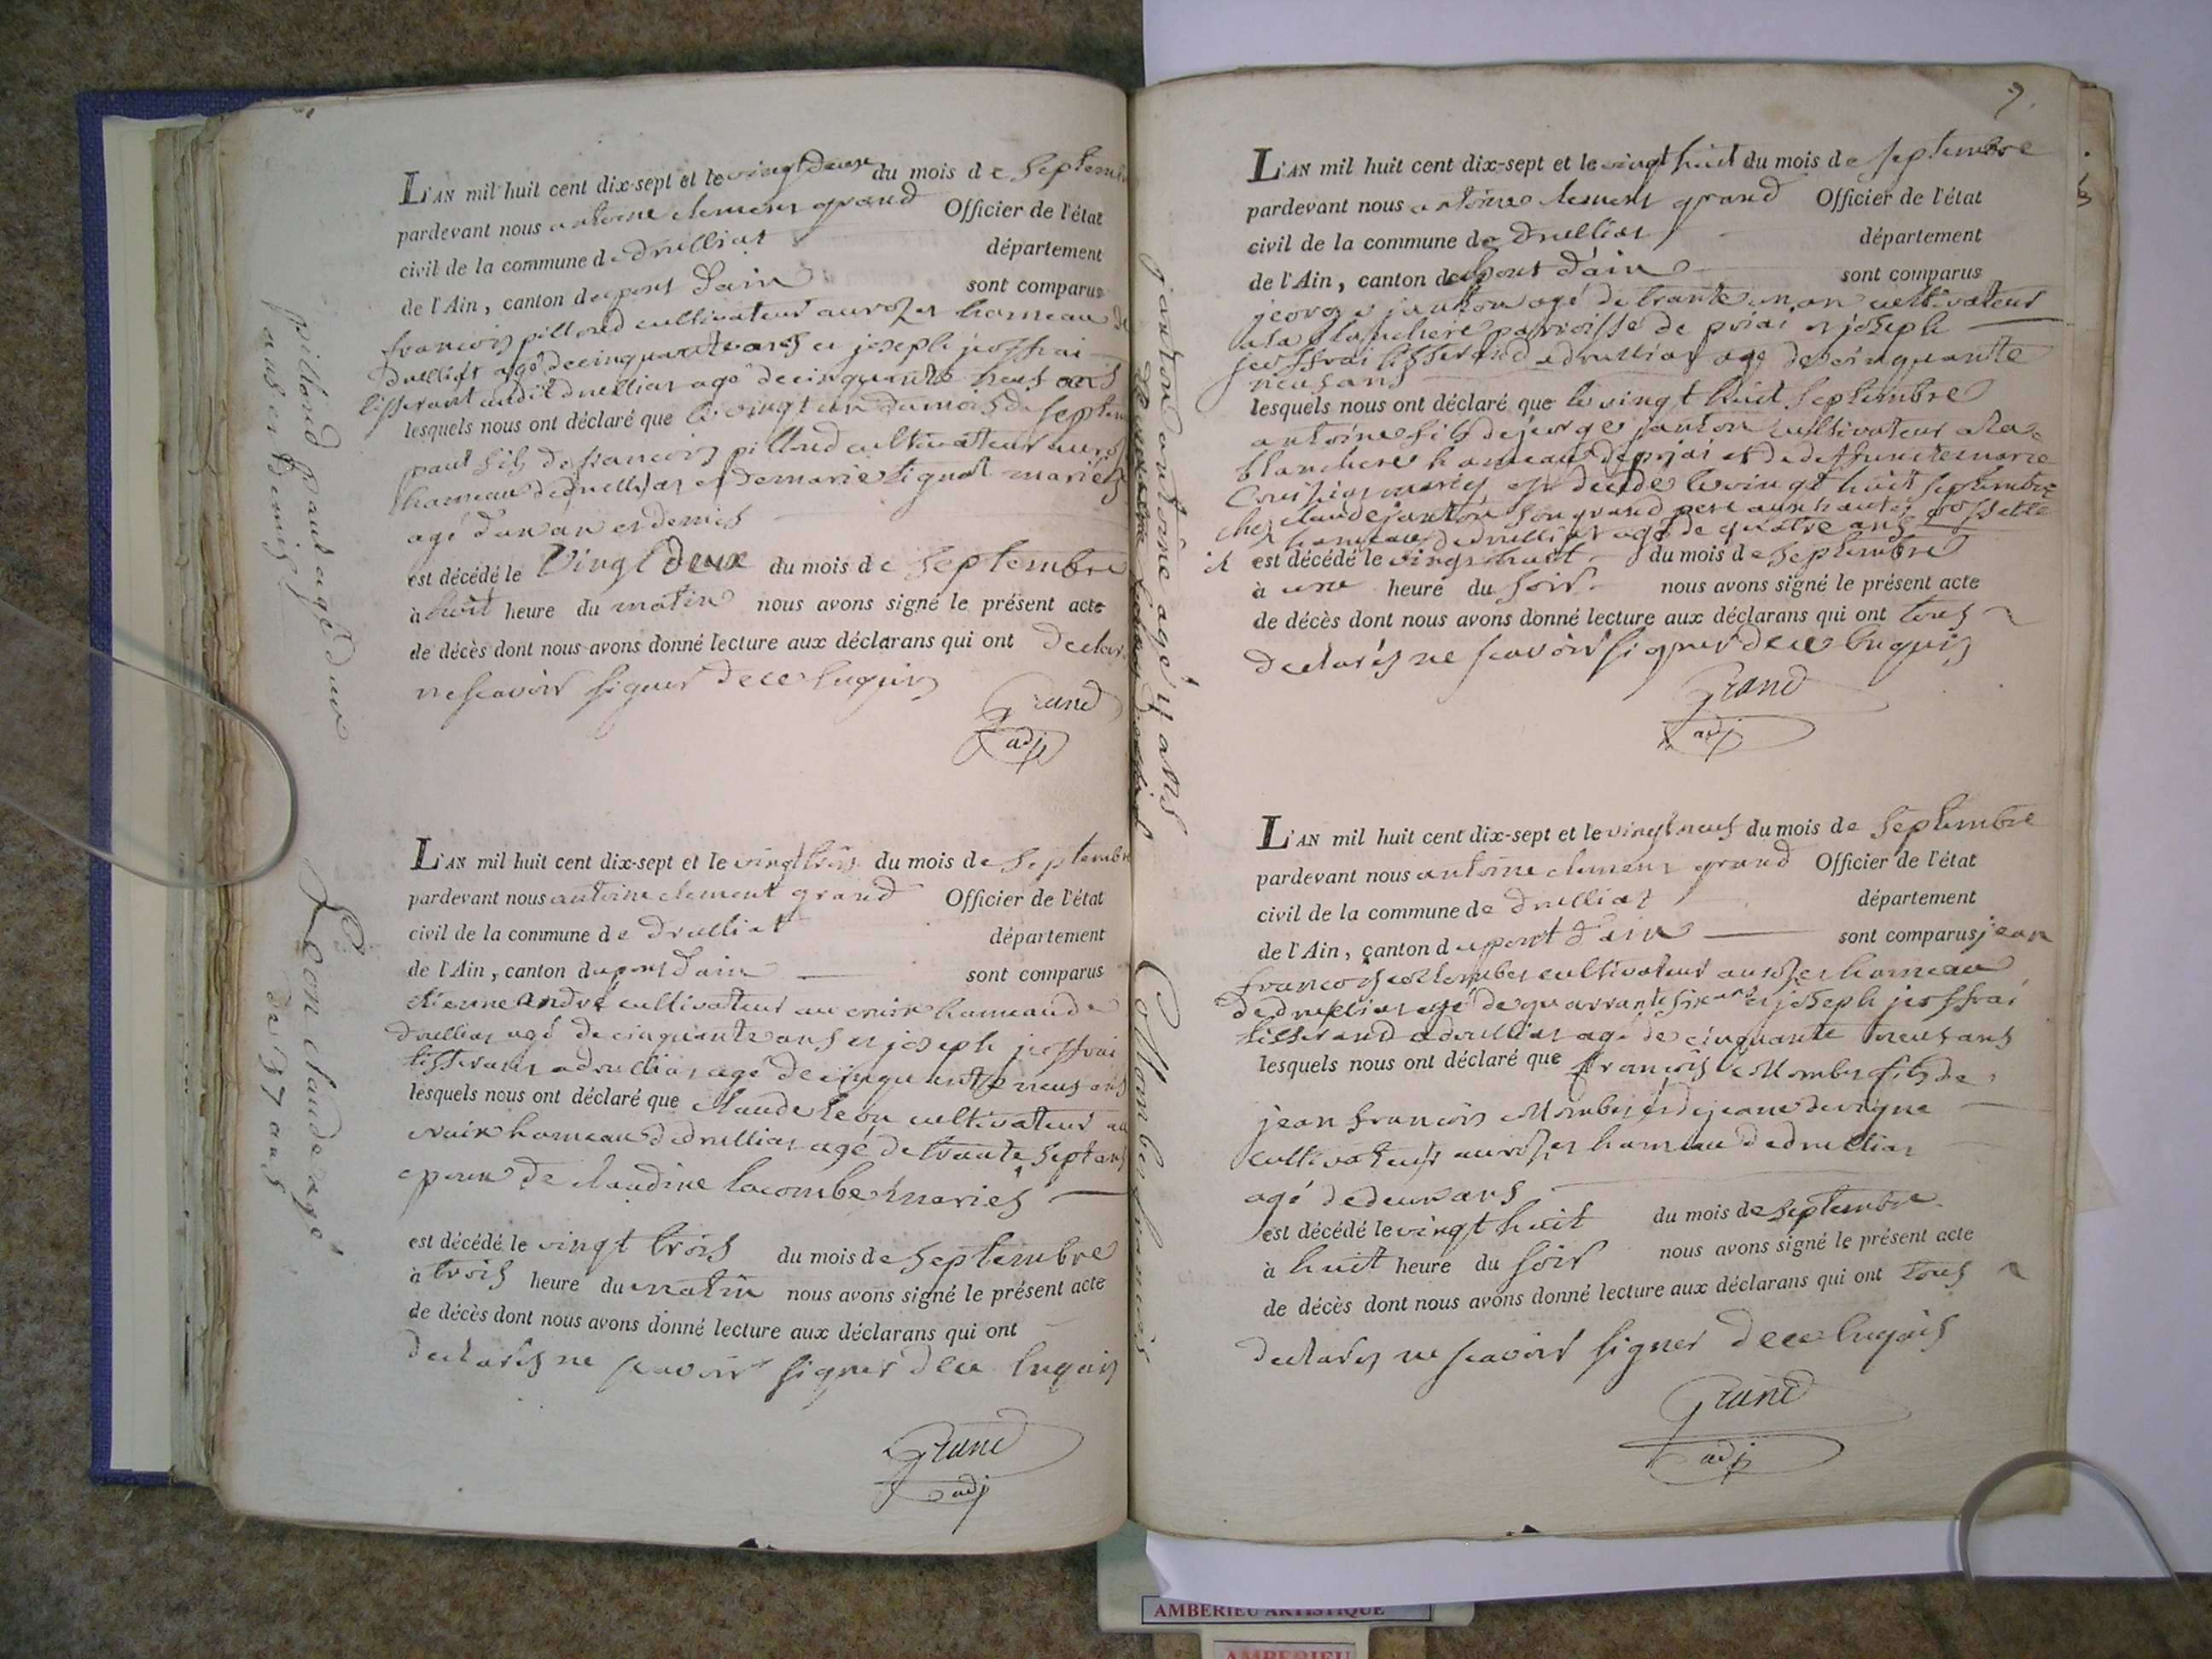 L'AN mil huit cent dix-sept et le vingt deux du mois de Septem
pardevant nous antoine clement grand Officier de l'état
civil de la commune de druilliat département
de l'Ain, canton de pont d'ain sont comparus
francois pilloud cultivateur au rozet hameau de
druilliat agé de cinquante ans et joseph joffrai
tisserant audit druilliat agé de cinquante neuf ans
lesquels nous ont déclaré que le vingt un du mois de septem
paul fils de francois pilloud cultivateur au
hameau de druilliat et de marie mariés
agé d'un an et demis
est décédé le Vingt deux du mois de Septembre
à huit heure du matin nous avons signé le présent acte
de décès dont nous avons donné lecture aux déclarans qui ont declar
ne scavoir signer de ce Grand
adj
pilloud paul agé d'un
ans et demis
L'AN mil huit cent dix-sept et le vingt trois du mois de Septembre
pardevant nous antoine clement grand Officier de l'état
civil de la commune de druilliat département
de l'Ain, canton du pont d'ain sont comparus
etienne andré cultivateur au hameau de
druilliat agé de cinquante ans et joseph joffrai
tisserant a druilliat agé de cinquante neuf ans
lesquels nous ont déclaré que claude leon cultivateur au
hameau de druilliat agé de trante sept ans
epoux de claudine lacombe mariés
est décédé le vingt trois du mois de Septembre
à trois heure du matin nous avons signé le présent acte
de décès dont nous avons donné lecture aux déclarans qui ont
declarés ne scavoir signer de ce
Grand
adj
Leon claude agé
de 37 ans
7.
L'AN mil huit cent dix-sept et le vingt huit du mois de septembre
pardevant nous antoine clement grand Officier de l'état
civil de la commune de druilliat département
de l'Ain, canton de pont d'ain sont comparus
jeorge janton agé de trante un an cultivateur
a la blanchere parroisse de priai et joseph
joffrai tisserand a druilliat agé de cinquante
neuf ans
lesquels nous ont déclaré que le vingt huit septembre
antoine fils de jeorge janton cultivateur a la
blanchere hameau de priai et de deffuncte marie
mariés est décédé le vingt huit septembre
chez claude janton son grand pere
hameau de druilliat agé de quatre ans
est décédé le vingt huit du mois de Septembre
à une heure du soir nous avons signé le présent acte
de décès dont nous avons donné lecture aux déclarans qui ont tous
declarés ne scavoir signer de ce
Grand
adj
janton antoine agé 4 ans
L'AN mil huit cent dix-sept et le vingt neuf du mois de Septembre
pardevant nous antoine clement grand Officier de l'état
civil de la commune de druilliat département
de l'Ain, canton du pont d'ain sont comparus jean
francois collombet cultivateur au rozet hameau
de druilliat agé de quarrante six ans et joseph joffrai
tisserand a druilliat agé de cinquante neuf ans
lesquels nous ont déclaré que francois collombet fils de
jean francois collombet et de jeane devigne
cultivateur au rozet hameau de druilliat
agé de deux ans
est décédé le vingt huit du mois de Septembre
à huit heure du soir nous avons signé le présent acte
de décès dont nous avons donné lecture aux déclarans qui ont tous
declarés ne scavoir signer de ce
Grand
adj
Collombet francois
AMBERIEU ARTISTIQUE
AMBERIEU